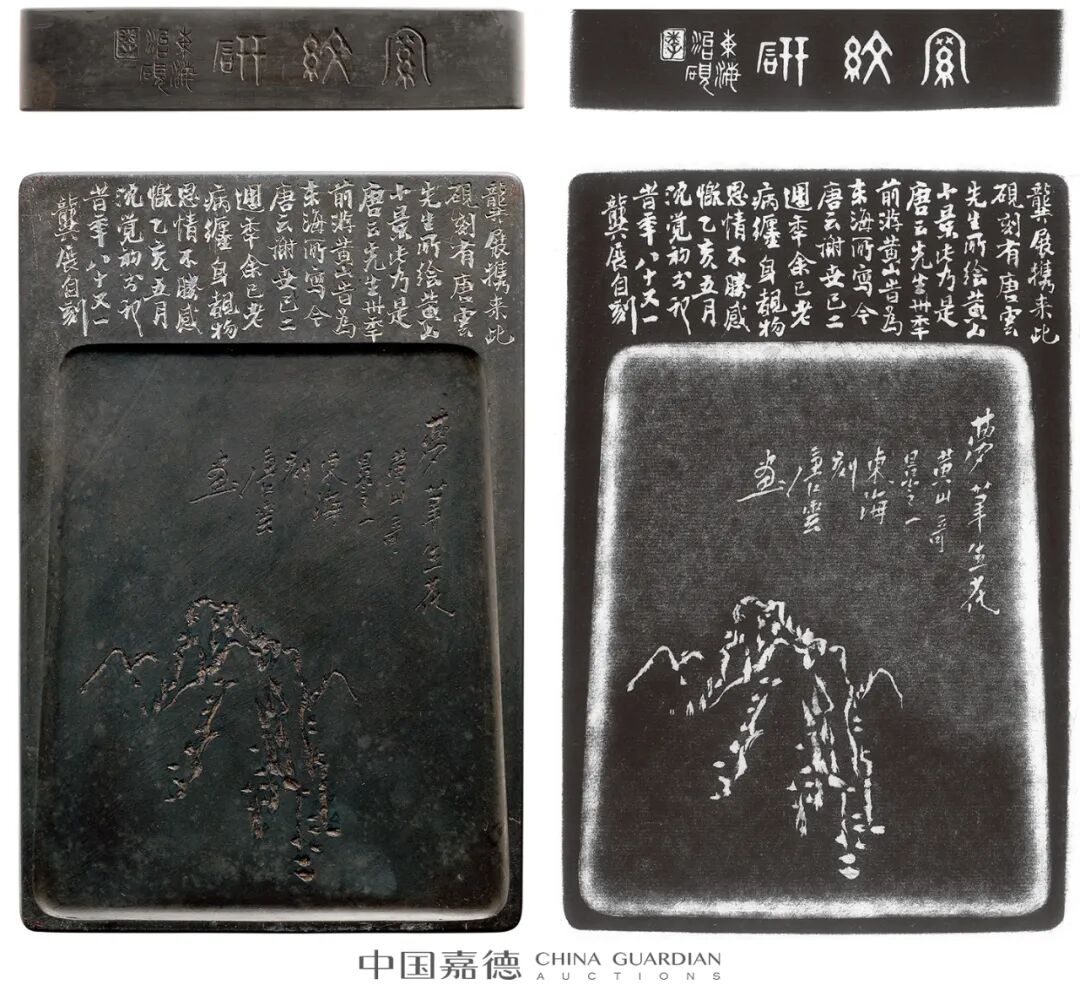 羅紋研
東海
治硯
龔展攜来此
硯刻有唐雲
先生所绘黄山
小景此乃是
唐云先生卅年
前游黄山旹為
东海所写今
唐云谢世已二
週年余已老
病缠身覩物
思情不勝感
慨乙亥五月
沈觉初
旹年八十又一
龔展自刻
夢筆生花
黄山奇
景之一
東海
刻
唐雲
画
羅紋研
東海
治硯
龔展攜来此
硯刻有唐雲
先生所绘黄山
小景此乃是
唐云先生卅年
前游黄山旹為
东海所写今
唐云谢世已二
週年余已老
病缠身覩物
思情不勝感
慨乙亥五月
沈觉初
旹年八十又一
龔展自刻
夢筆生花
黄山奇
景之一
東海
刻
唐雲
画
中国嘉德 CHINA GUARDIAN
AUCTIONS